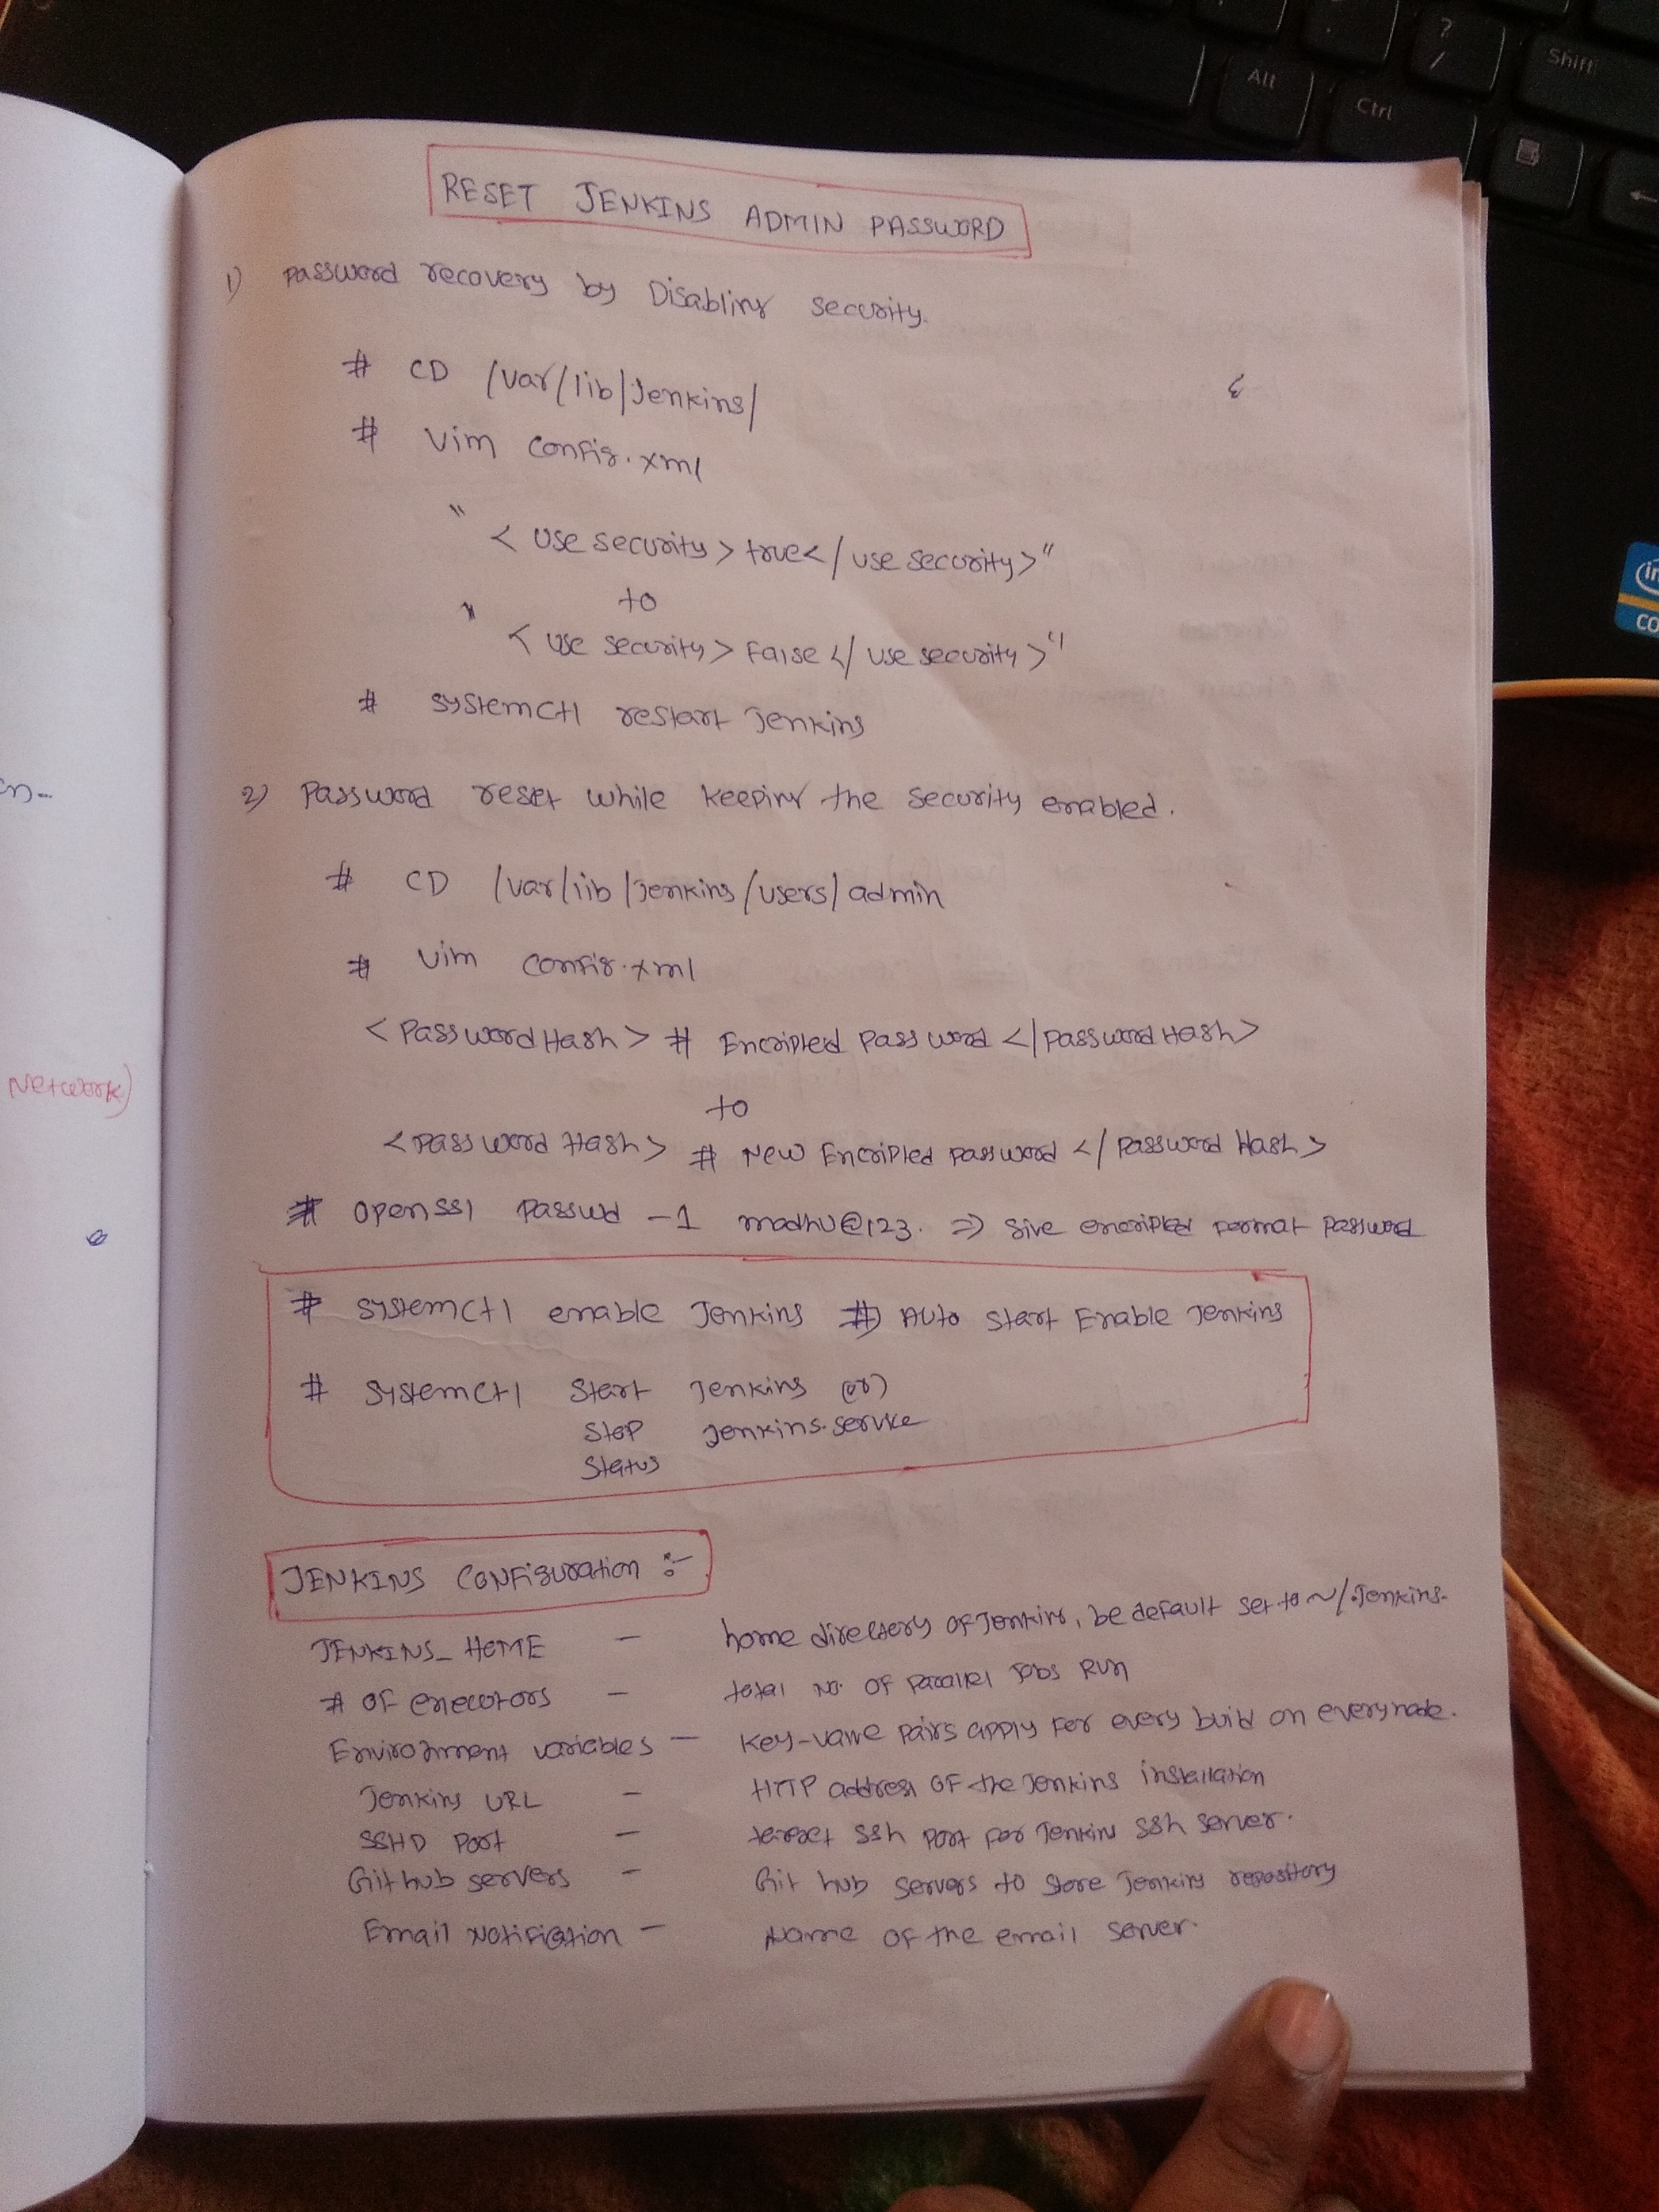 Alt
Ctrl
?
/
Shift
RESET JENKINS ADMIN PASSWORD
1) Password recovery by Disabling security.
# CD /var/lib/Jenkins/
# vim config.xml
" < use security > true </ use security > "
to
" < use security > False </ use security > "
# systemctl restart Jenkins
2) Password reset while keeping the security enabled.
# CD /var/lib/Jenkins/users/admin
# vim config.xml
< Password Hash > # Encripled Password </ password Hash >
to
< Password Hash > # New Encripled password </ password Hash >
# openssl passwd -1 madhu@123. => give encripled format password
# systemctl enable Jenkins #) Auto start Enable Jenkins
# systemctl start Jenkins (or)
stop Jenkins.service
status
JENKINS CONFiguration :-
JENKINS_HOME - home directory of Jenkins, be default set to ~/.Jenkins.
# of executors - total no. of parallel jobs Run
Environment variables - key-value pairs apply for every build on every node.
Jenkins URL - HTTP address of the Jenkins installation
SSHD Port - ssh port for Jenkins ssh server.
Github servers - Git hub servers to store Jenkins repository
Email Notification - Name of the email server.
Network)